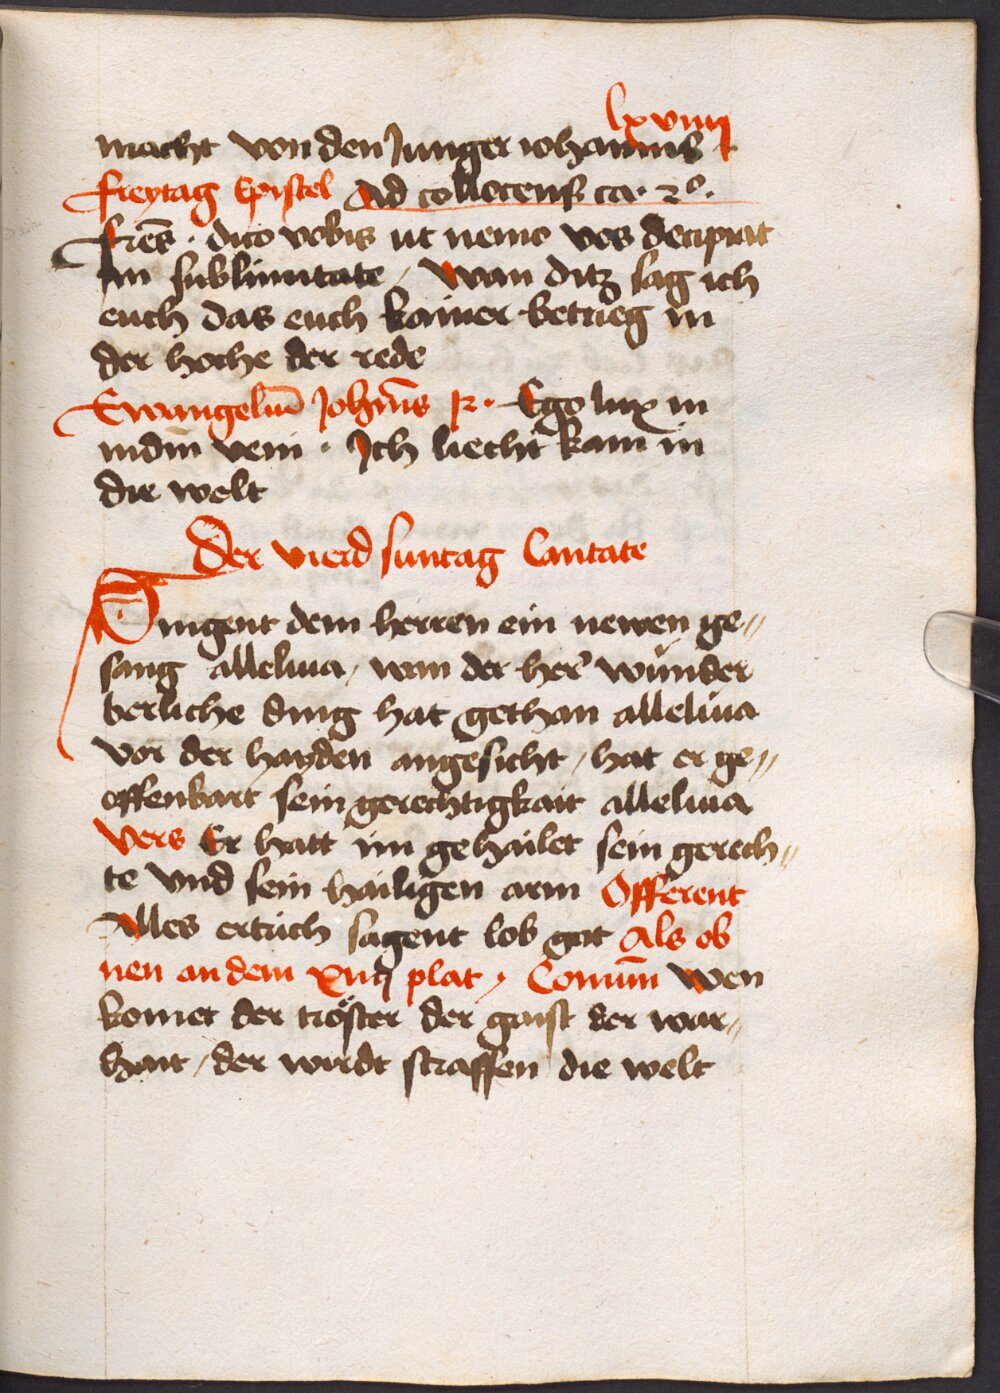 lxviiij
macht von den Junger iohannis
freytag Epistel Ad collocens ca. 2º.
fres̄ . dico vobis ut nemo vos decipiat
im sublimitate / Wan ditz sag ich
euch das euch kainer betrieg in
der hoche der rede
Ewangeliū Johan̄s 12 . Ego lux in
mdm̄ veni . Ich liecht kam in
die welt
Der vierd suntag Cantate
Singent dem herren ein newen ge„
sang alleluia , wan der her wunder
berliche ding hat gethan alleluia
vor der hayden angesicht / hat er ge„
offenbart sein gerechtigkait alleluia
Vers Er hatt im gehailet sein gerech„
te vnd sein hailigen arm Offerent
Alles ertrich sagent lob got Als ob
nen an dem xiiij plat , Comūm Wen
komet der tröster der gaist der war„
hait / der wirdt straffen die welt